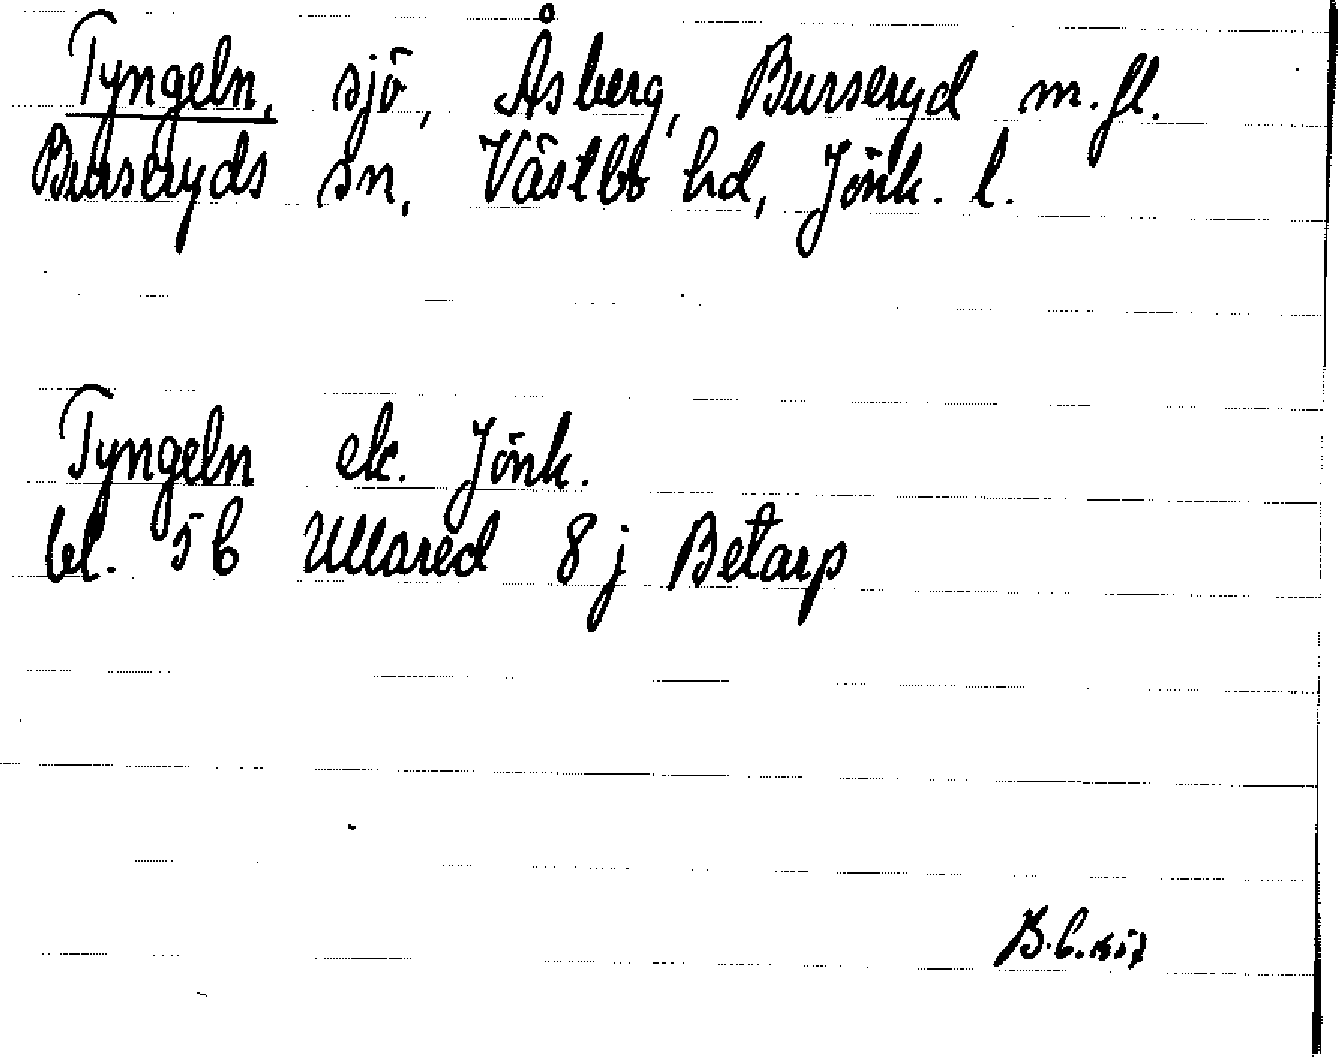 Tyngeln, sjö, Åsberg, Burseryd m.fl.
Burseryds sn, Västbo hd, Jönk. l.
Tyngeln ek. Jönk.
bl. 5b Ullared 8j Betarp